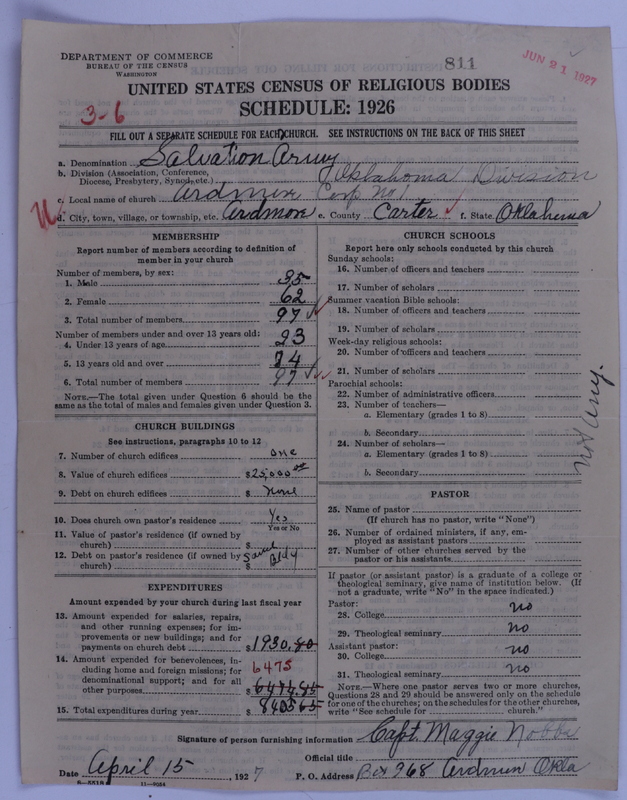 DEPARTMENT OF COMMERCE
BUREAU OF THE CENSUS
WASHINGTON
811
JUN 21 1927
UNITED STATES CENSUS OF RELIGIOUS BODIES
SCHEDULE: 1926
3-6
FILL OUT A SEPARATE SCHEDULE FOR EACH CHURCH. SEE INSTRUCTIONS ON THE BACK OF THIS SHEET
a. Denomination Salvation Army
b. Division (Association, Conference, Diocese, Presbytery, Synod, etc.) Oklahoma Division
c. Local name of church Ardmore Corp No 1
d. City, town, village, or township, etc. Ardmore e. County Carter f. State Oklahoma
MEMBERSHIP
Report number of members according to definition of
member in your church
Number of members, by sex:
1. Male 35
2. Female 62
3. Total number of members 97
Number of members under and over 13 years old:
4. Under 13 years of age 23
5. 13 years old and over 74
6. Total number of members 97
NOTE.—The total given under Question 6 should be
same as the total of males and females given under Question 3.
CHURCH BUILDINGS
See instructions, paragraphs 10 to 12
7. Number of church edifices one
8. Value of church edifices $25,000.00
9. Debt on church edifices $ None
10. Does church own pastor's residence Yes
Yes or No
11. Value of pastor's residence (if owned by
church) $
12. Debt on pastor's residence (if owned by
church) $
Bldg
EXPENDITURES
Amount expended by your church during last fiscal year
13. Amount expended for salaries, repairs,
and other running expenses; for im-
provements or new buildings; and for
payments on church debt $1930.80
14. Amount expended for benevolences, in-
cluding home and foreign missions; for
denominational support; and for all
other purposes $ 6475
6474.85
15. Total expenditures during year $ 8405.65
CHURCH SCHOOLS
Report here only schools conducted by this church
Sunday schools:
16. Number of officers and teachers
17. Number of scholars
Summer vacation Bible schools:
18. Number of officers and teachers
19. Number of scholars
Week-day religious schools:
20. Number of officers and teachers
21. Number of scholars
Parochial schools:
22. Number of administrative officers
23. Number of teachers—
a. Elementary (grades 1 to 8)
b. Secondary
24. Number of scholars—
a. Elementary (grades 1 to 8)
b. Secondary
not any.
PASTOR
25. Name of pastor
(If church has no pastor, write "None")
26. Number of ordained ministers, if any, em-
ployed as assistant pastors
27. Number of other churches served by the
pastor or his assistants
If pastor (or assistant pastor) is a graduate of a college or
theological seminary, give name of institution below. (If
not a graduate, write "No" in the space indicated.)
Pastor:
28. College no
29. Theological seminary no
Assistant pastor:
30. College no
31. Theological seminary no
NOTE.—Where one pastor serves two or more churches,
Questions 28 and 29 should be answered only on the schedule
for one of the churches; on the schedules for the other churches,
write "See schedule for church."
Signature of person furnishing information Capt. Maggie Nobbs
Official title
Date April 15, 1927 P. O. Address Box 268 Ardmore Okla
8-5518 11-9064